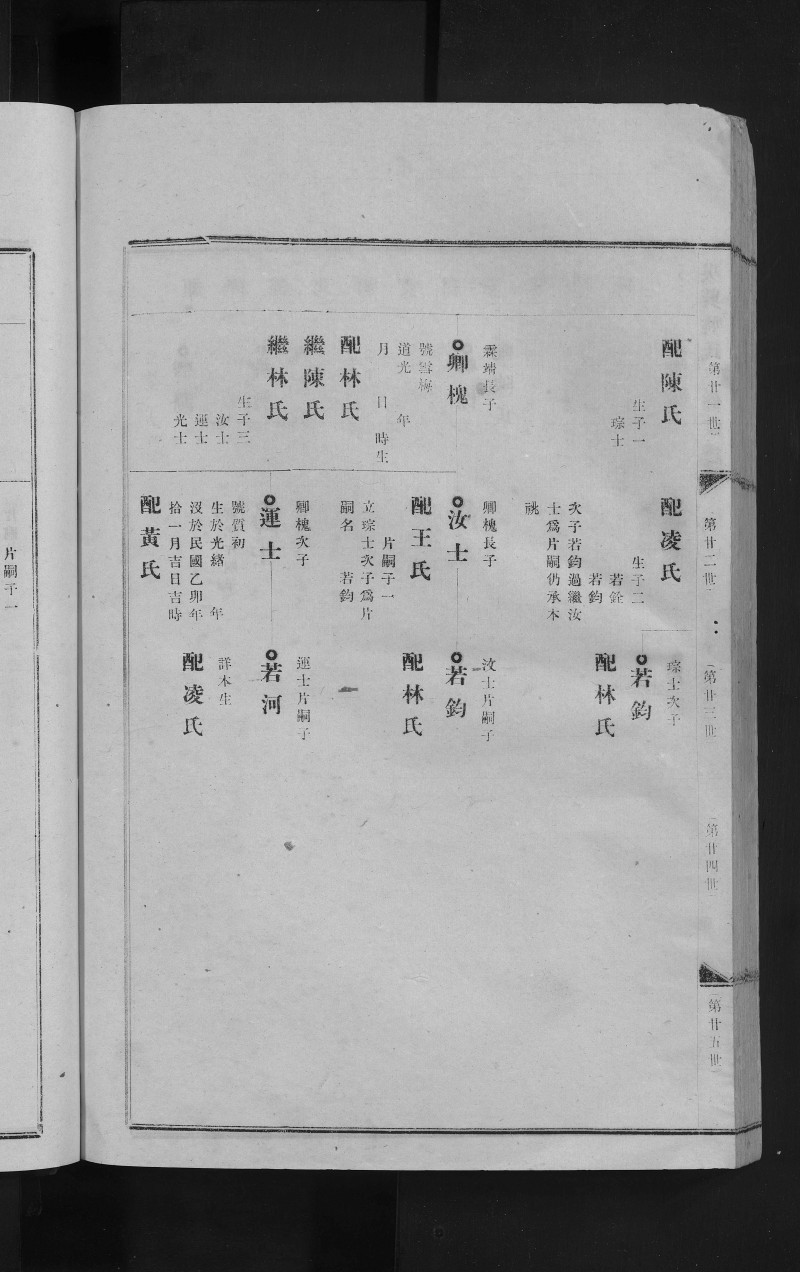 第廿一世
第廿二世
第廿三世
第廿四世
第廿五世
配陳氏
生子一
琮士
霖靖長子
卿槐
號雲梅
道光 年
月 日 時生
配林氏
繼陳氏
繼林氏
生子三
汝士
運士
光士
配凌氏
生子二
若銓
若鈞
次子若鈞過繼汝
士爲片嗣仍承本
祧
卿槐長子
汝士
配王氏
片嗣子一
立琮士次子爲片
嗣名 若鈞
卿槐次子
運士
號質初
生於光緒 年
沒於民國乙卯年
拾一月吉日吉時
配黃氏
琮士次子
若鈞
配林氏
汝士片嗣子
若鈞
配林氏
運士片嗣子
若河
詳本生
配凌氏
片嗣子一